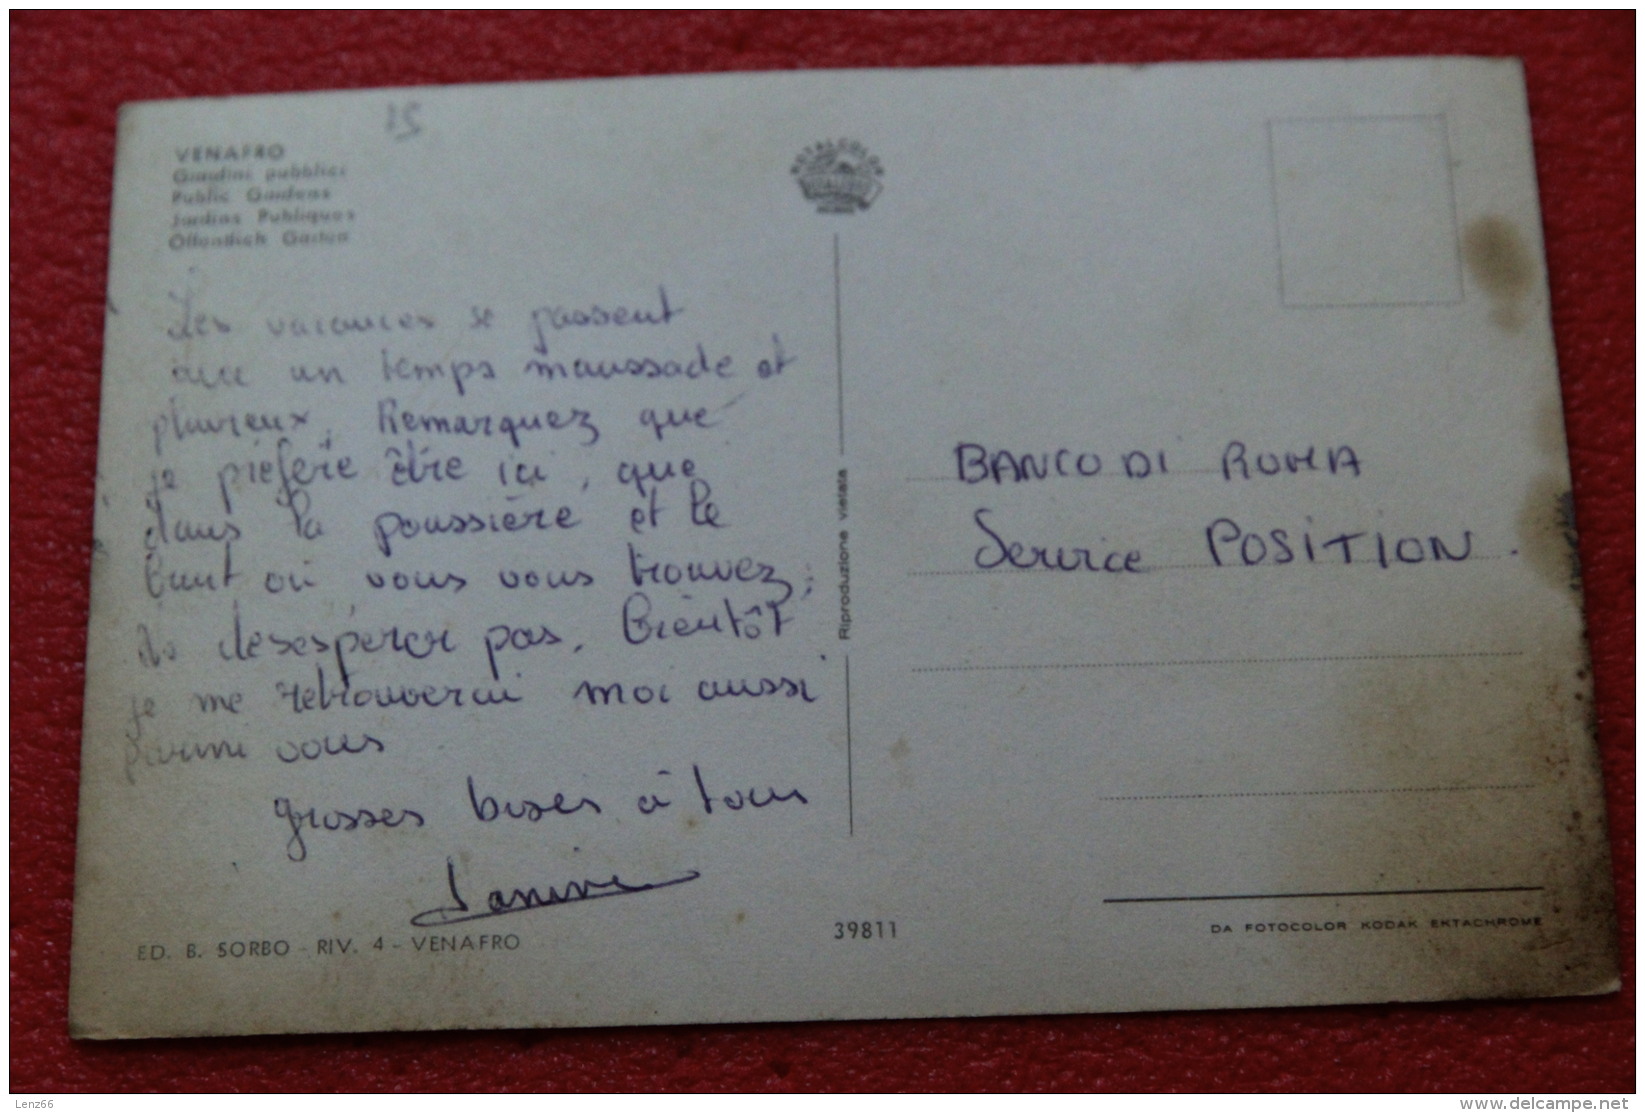 15
VENAFRO
Giardini pubblici
Public Gardens
Jardins Publiques
Öffentlich Garten
ROTALCOLOR
Les vacances se passent
avec un temps maussade et
pluvieux. Remarquez que
je préfère être ici, que
dans la poussière et le
bruit où vous vous trouvez;
desesperer pas. Bientôt
je me retrouverai moi aussi
parmi vous
grosses bises à tous
Janine
ED. B. SORBO - RIV. 4 - VENAFRO
Riproduzione vietata
39811
BANCO DI ROMA
Service POSITION.
DA FOTOCOLOR KODAK EKTACHROME
Lenz66
delcampe.net